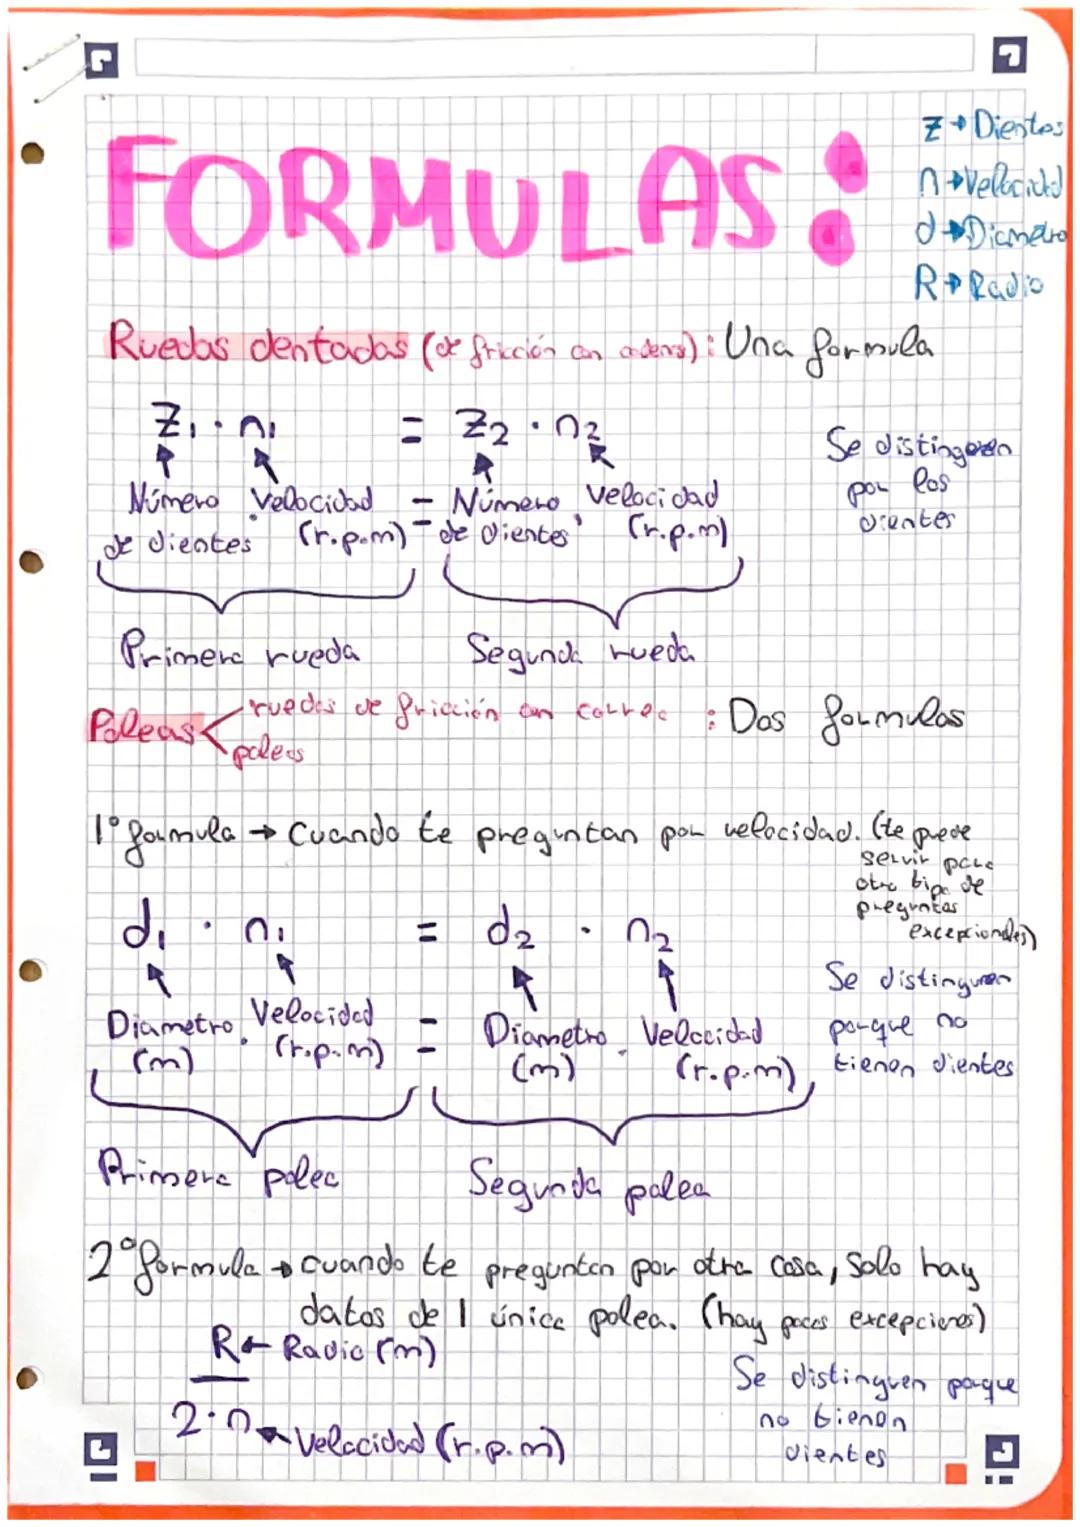 FORMULAS:
Z → Dientes
n → Velocidad
d → Diametro
R → Radio
Ruedas dentadas (de fricción con cadena): Una formula
Z₁ · n₁ = Z₂ · n₂
Número Velocidad = Número Velocidad
de dientes · (r.p.m) de dientes · (r.p.m)
Se distinguen
por los
dientes
Primera rueda Segunda rueda
Poleas ruedas de fricción con correa : Dos formulas
poleas
1º formula → Cuando te preguntan por velocidad. (te puede
servir para
otro tipo de
preguntas
excepcionales)
d₁ · n₁ = d₂ · n₂
Diametro · Velocidad = Diametro · Velocidad
(m) (r.p.m) (m) (r.p.m)
Se distinguen
porque no
tienen dientes
Primera polea Segunda polea
2º formula → cuando te preguntan por otra cosa, solo hay
datos de 1 única polea. (hay pocas excepciones)
R ← Radio (m)
2·n ← Velocidad (r.p.m)
Se distinguen porque
no tienen
dientes